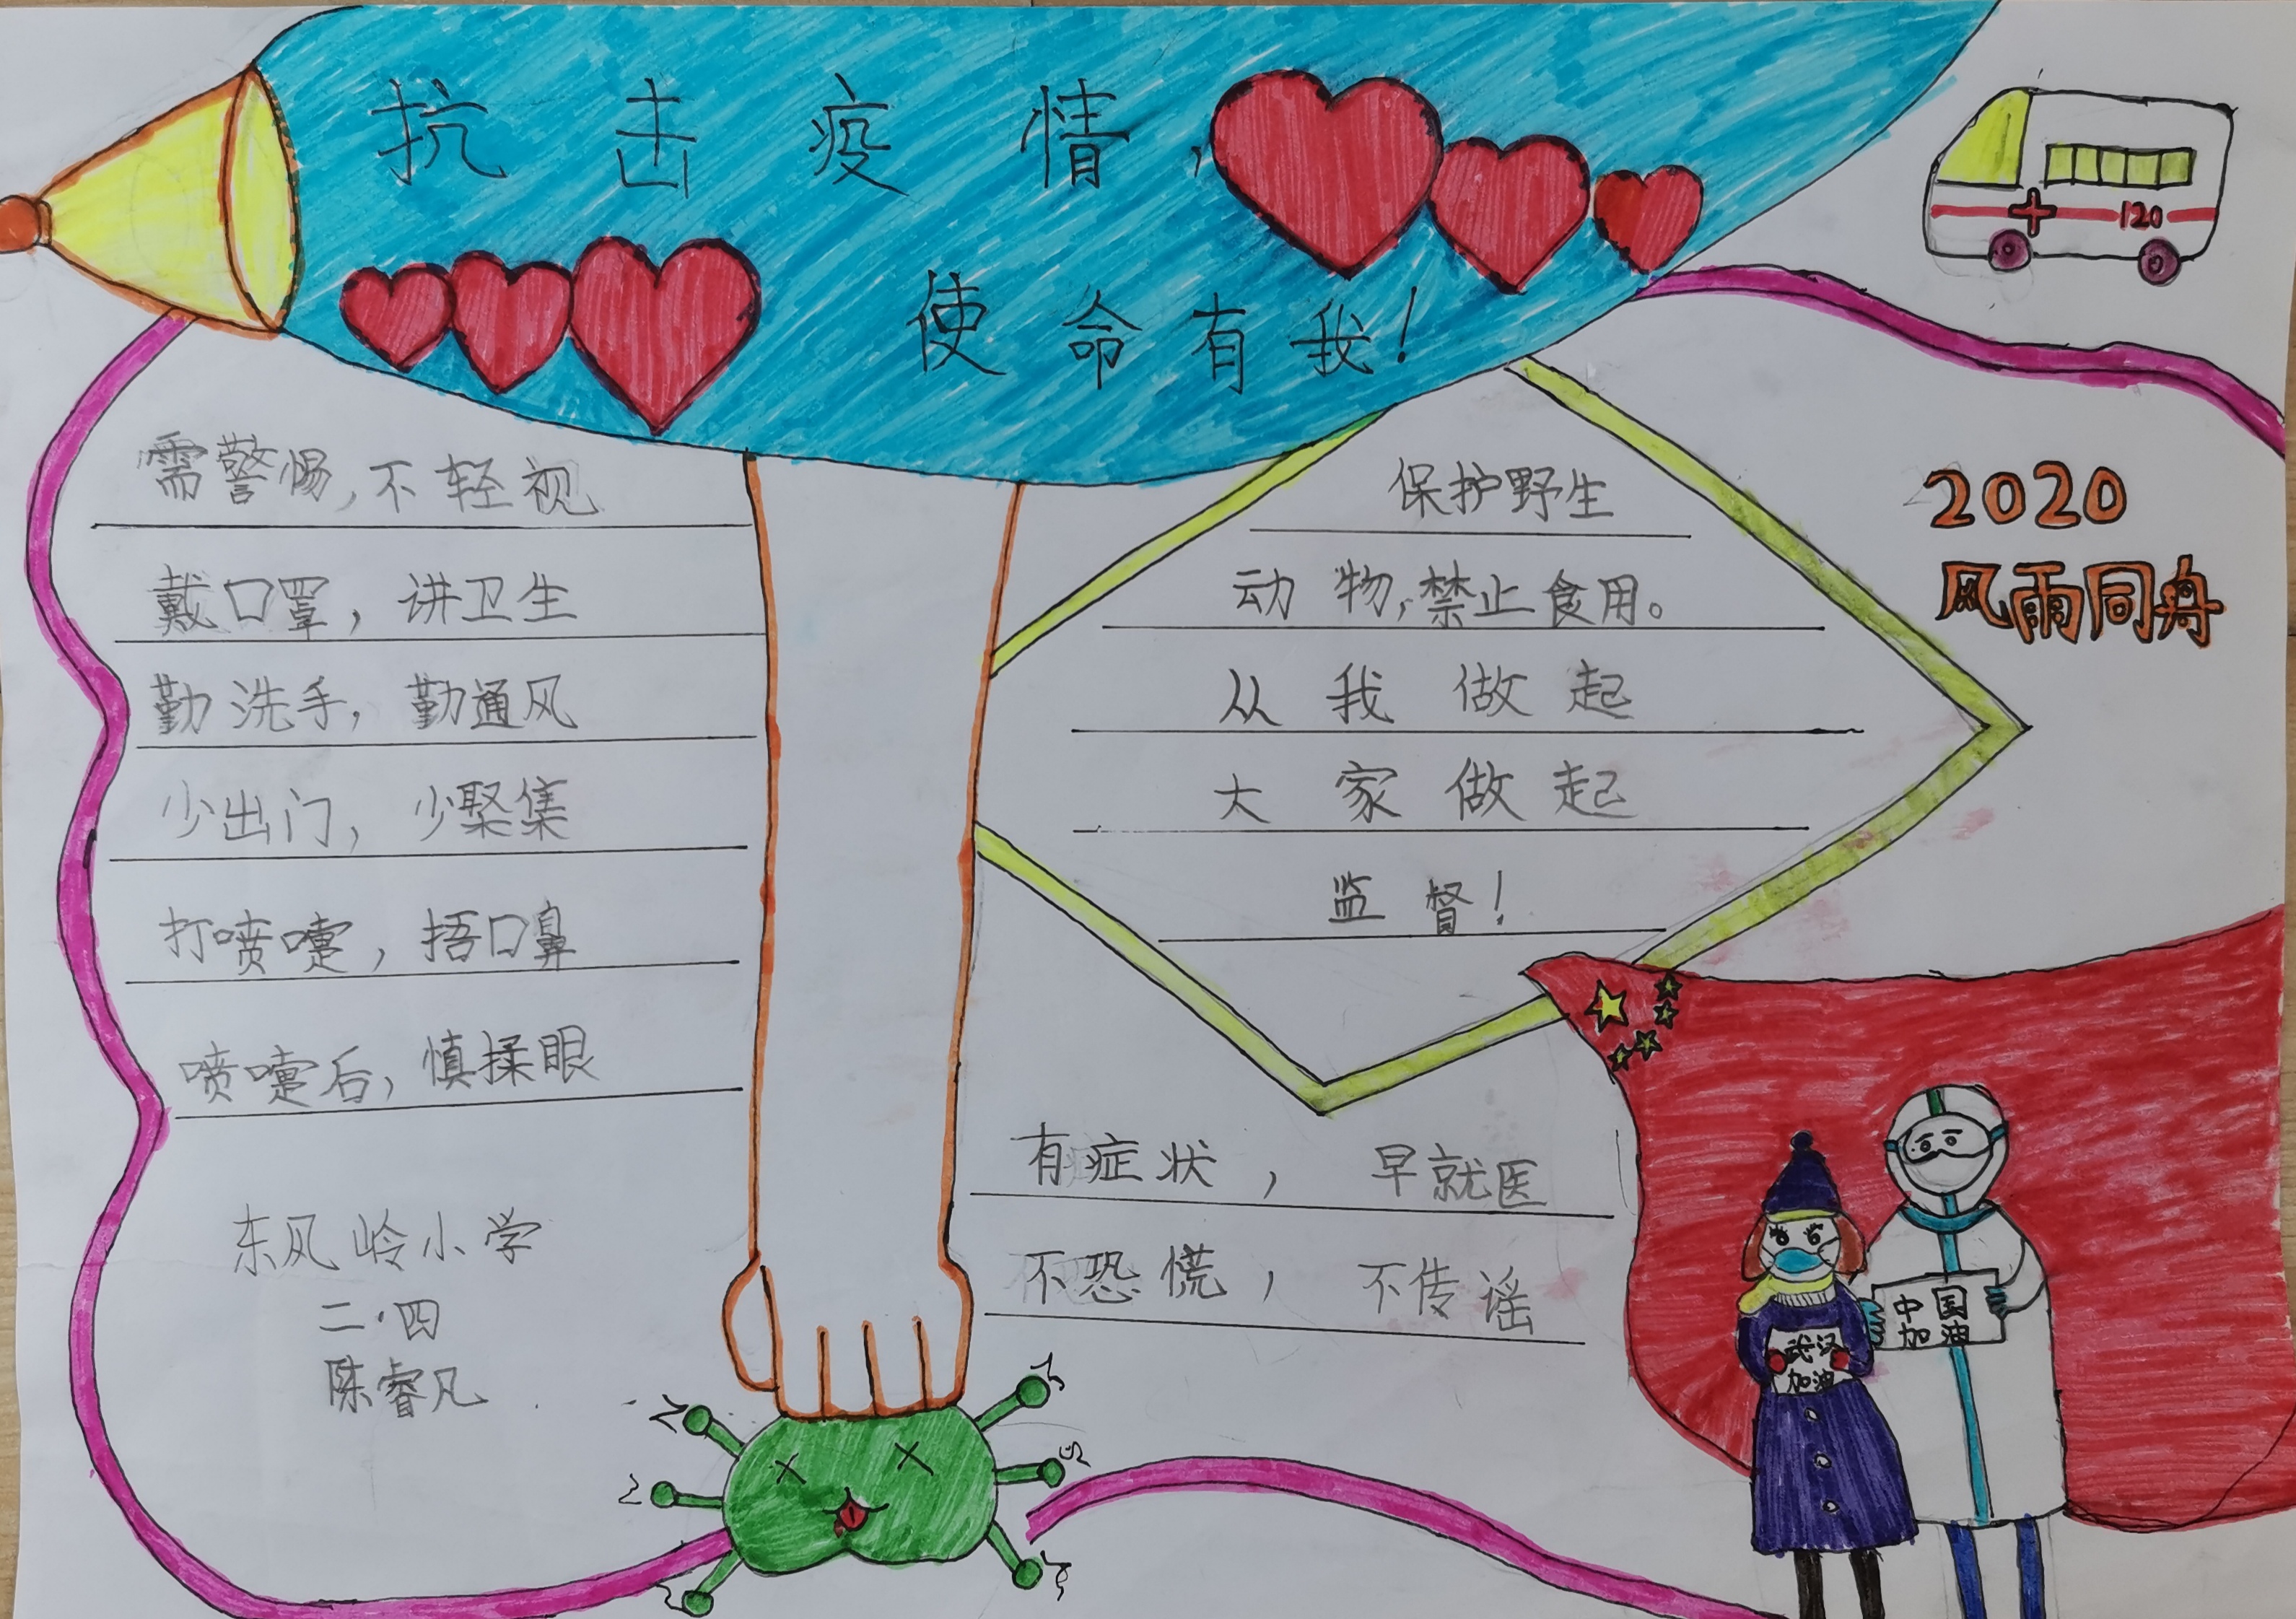 抗击疫情,
使命有我!
120
需警惕,不轻视
戴口罩,讲卫生
勤洗手,勤通风
少出门,少聚集
打喷嚏,捂口鼻
喷嚏后,慎揉眼
东风岭小学
二·四
陈睿凡
保护野生
动物,禁止食用。
从我做起
大家做起
监督!
有症状,早就医
不恐慌,不传谣
2020
风雨同舟
中国
加油
武汉
加油